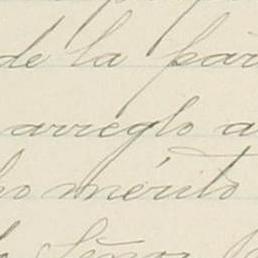 de la par
arreglo a
ho mérito
Señor